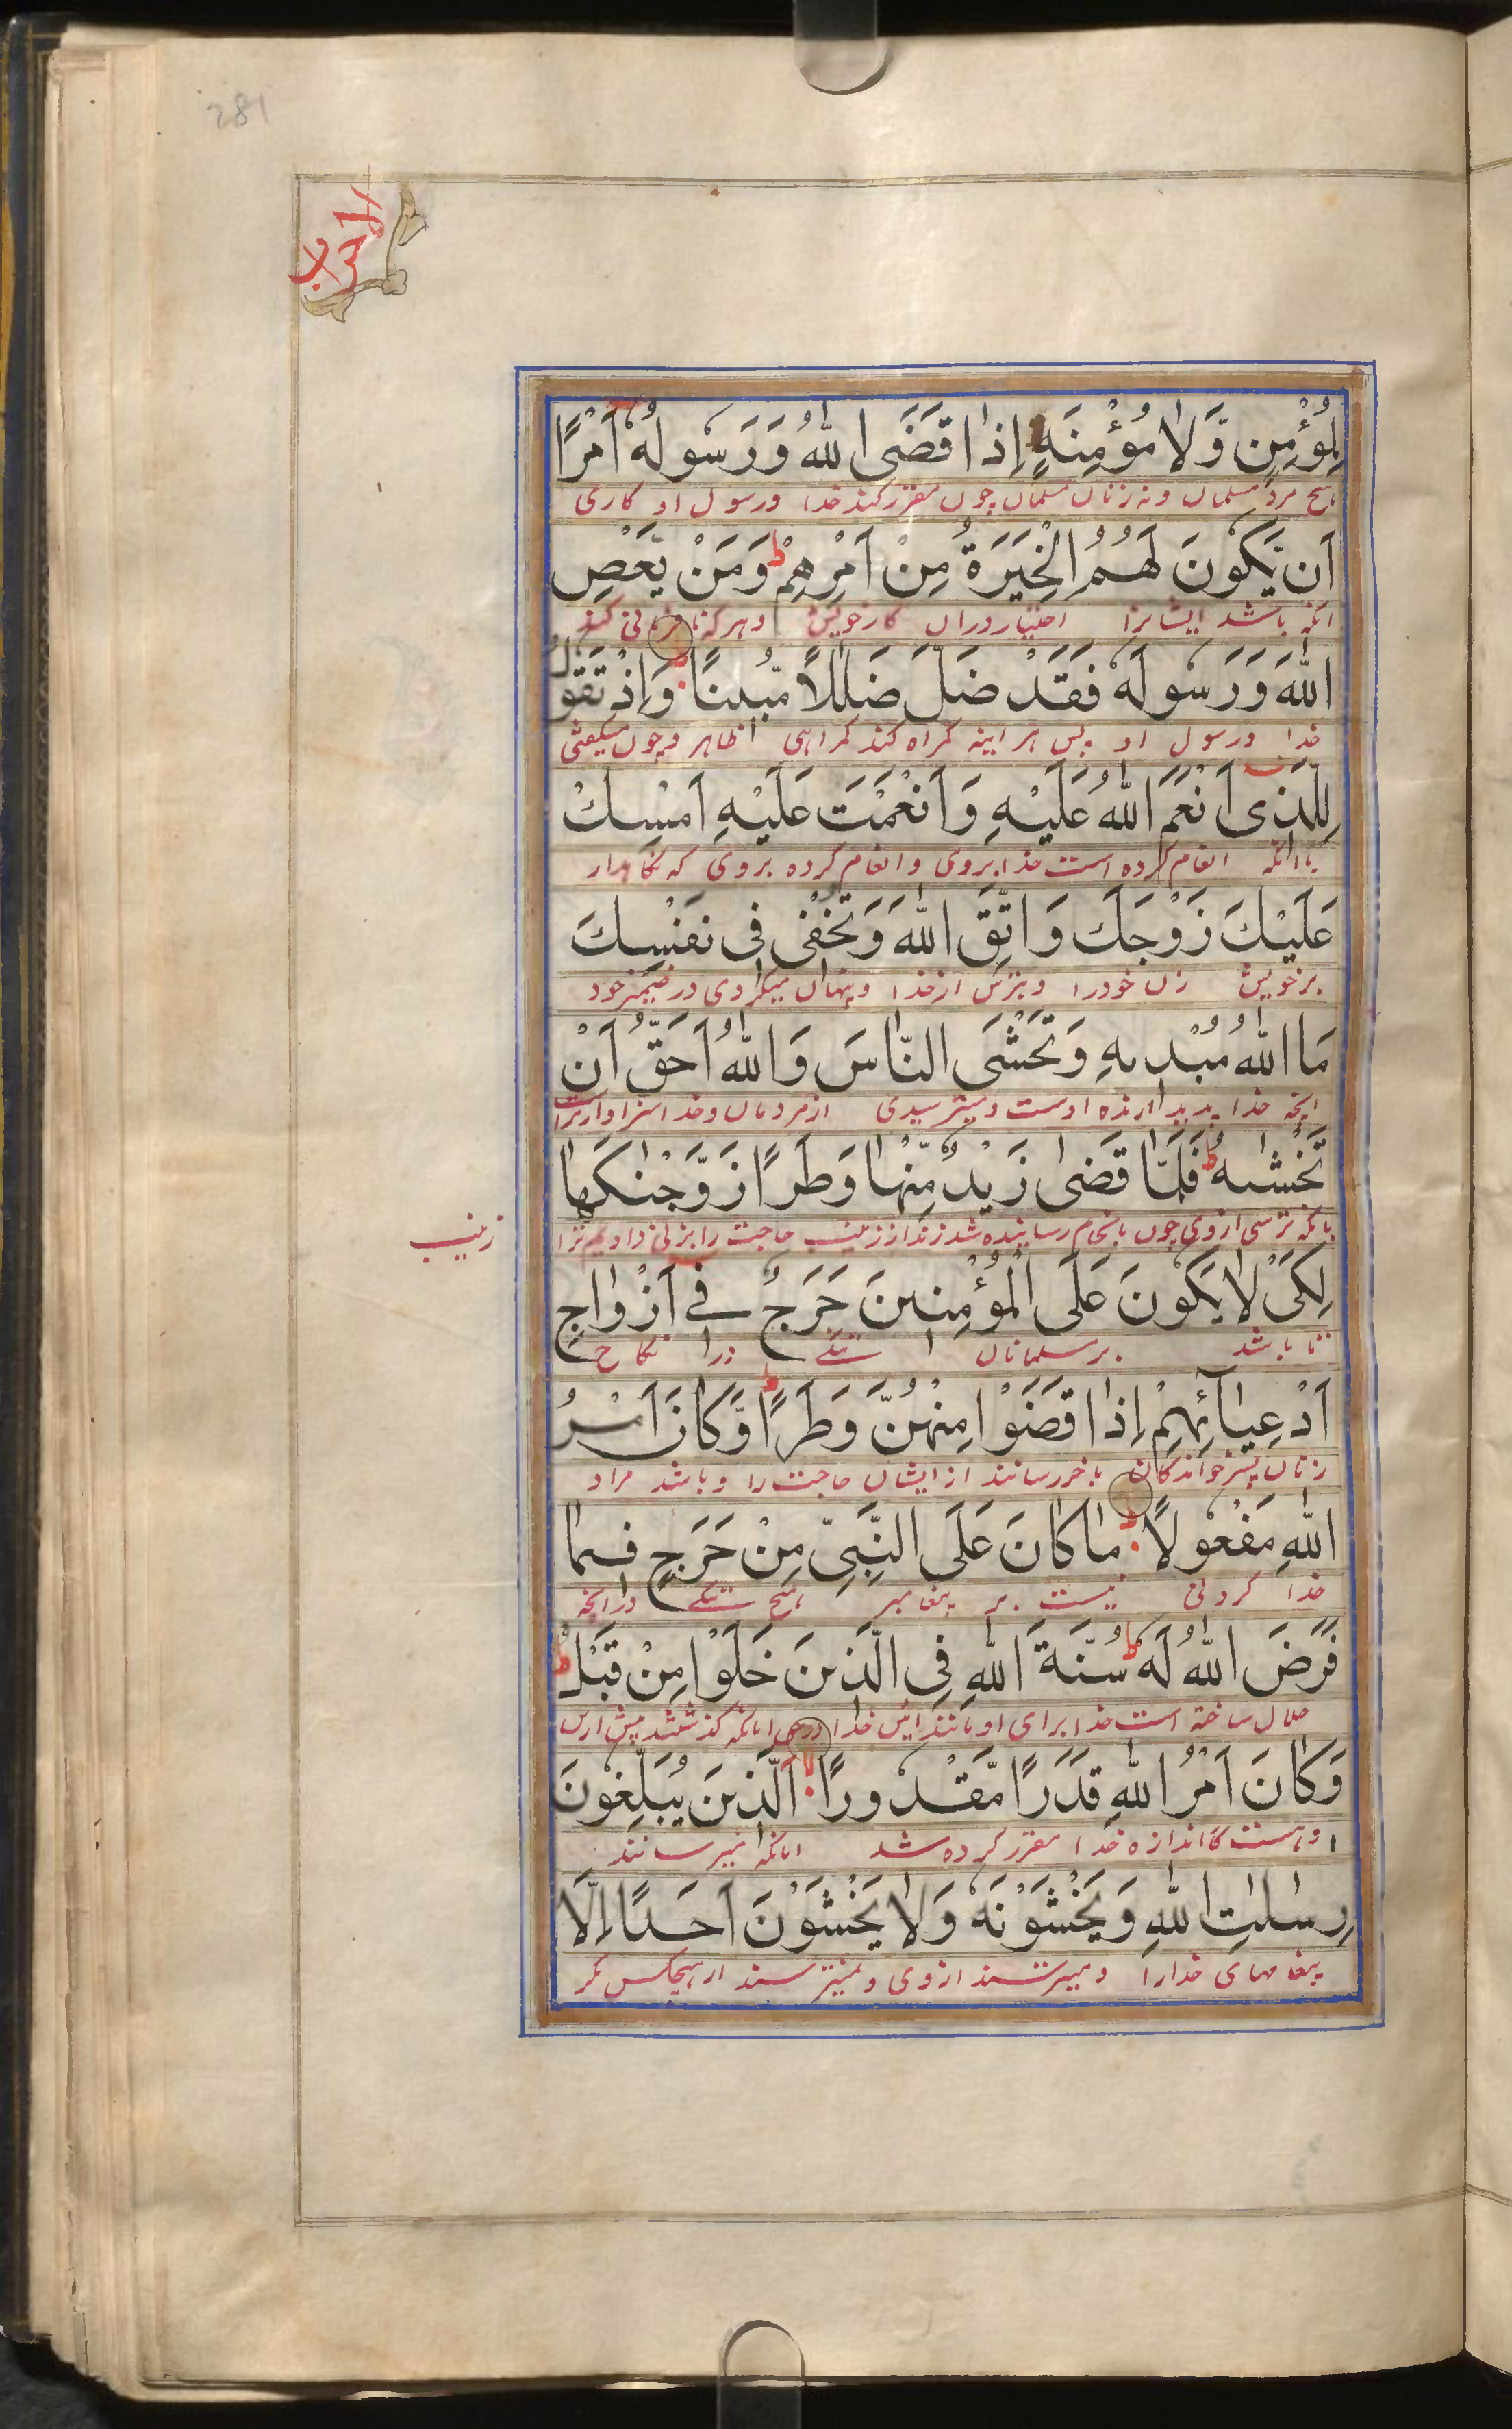 281
الاحزاب
لِمُؤْمِنٍ وَّلَا مُؤْمِنَةٍ اِذَا قَضَى اللّٰهُ وَرَسُولُهٗٓ اَمْرًا
هیچ مرد مسلمان و نه زنان مسلمان چون مقرر کند خدا ورسول او کاری
اَنْ يَّكُوْنَ لَهُمُ الْخِيَرَةُ مِنْ اَمْرِهِمْ ط وَمَنْ يَّعْصِ
انکه باشد ایشانرا اختیار دران کار خویش وهرکه نافرمانی کند
اللّٰهَ وَرَسُولَهٗ فَقَدْ ضَلَّ ضَلٰلًا مُّبِينًا وَاِذْ تَقُولُ
خدا ورسول او پس هر اینه گمراه کند گمراهی ظاهر وچون میگفتی
لِلَّذِى اَنْعَمَ اللّٰهُ عَلَيْهِ وَاَنْعَمْتَ عَلَيْهِ اَمْسِكْ
با انکه انعام کرده است خدا بروی و انعام کرده بروی که نکاهدار
عَلَيْكَ زَوْجَكَ وَاتَّقِ اللّٰهَ وَتُخْفِى فِى نَفْسِكَ
برخویش زن خودرا وبترس ازخدا وپنهان میکردی در ضمیر خود
مَا اللّٰهُ مُبْدِيهِ وَتَخْشَى النَّاسَ وَاللّٰهُ اَحَقُّ اَنْ
انچه خدا پدید ارنده اوست ومیترسیدی ازمردمان وخدا سزاوارتراست
تَخْشٰىهُ ط فَلَمَّا قَضٰى زَيْدٌ مِّنْهَا وَطَرًا زَوَّجْنٰكَهَا
بانکه ترسی ازوی چون بانجام رسانیده شد زید از زینب حاجت را بزنی دادیم ترا
زینب
لِكَىْ لَا يَكُونَ عَلَى الْمُؤْمِنِينَ حَرَجٌ فِى اَزْوَاجِ
تا باشد بر مسلمانان تنگی در نکاح
اَدْعِيَآئِهِمْ اِذَا قَضَوْا مِنْهُنَّ وَطَرًا ط وَّكَانَ اَمْرُ
زنان پسر خواندکان باخر رسانند از ایشان حاجت را وباشد مراد
اللّٰهِ مَفْعُولًا مَا كَانَ عَلَى النَّبِىِّ مِنْ حَرَجٍ فِيمَا
خدا کردنی نیست بر پیغامبر هیچ تنگی درانچه
فَرَضَ اللّٰهُ لَهٗ ط سُنَّةَ اللّٰهِ فِى الَّذِينَ خَلَوْا مِنْ قَبْلُ ط
حلال ساخته است خدا برای او مانند ائین خدا درحق انانکه گذشتند پیش ازین
وَكَانَ اَمْرُ اللّٰهِ قَدَرًا مَّقْدُورًا الَّذِينَ يُبَلِّغُونَ
وهست کار اندازه خدا مقرر کرده شد انانکه میرسانند
رِسٰلٰتِ اللّٰهِ وَيَخْشَوْنَهٗ وَلَا يَخْشَوْنَ اَحَدًا اِلَّا
پیغامهای خدارا ومیترسند ازوی ونمیترسند از هیچکس مگر